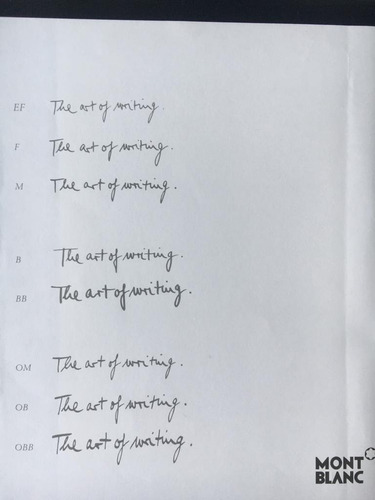 EF The art of writing.
F The art of writing.
M The art of writing.
B The art of writing.
BB The art of writing.
OM The art of writing.
OB The art of writing.
OBB The art of writing.
MONT
BLANC